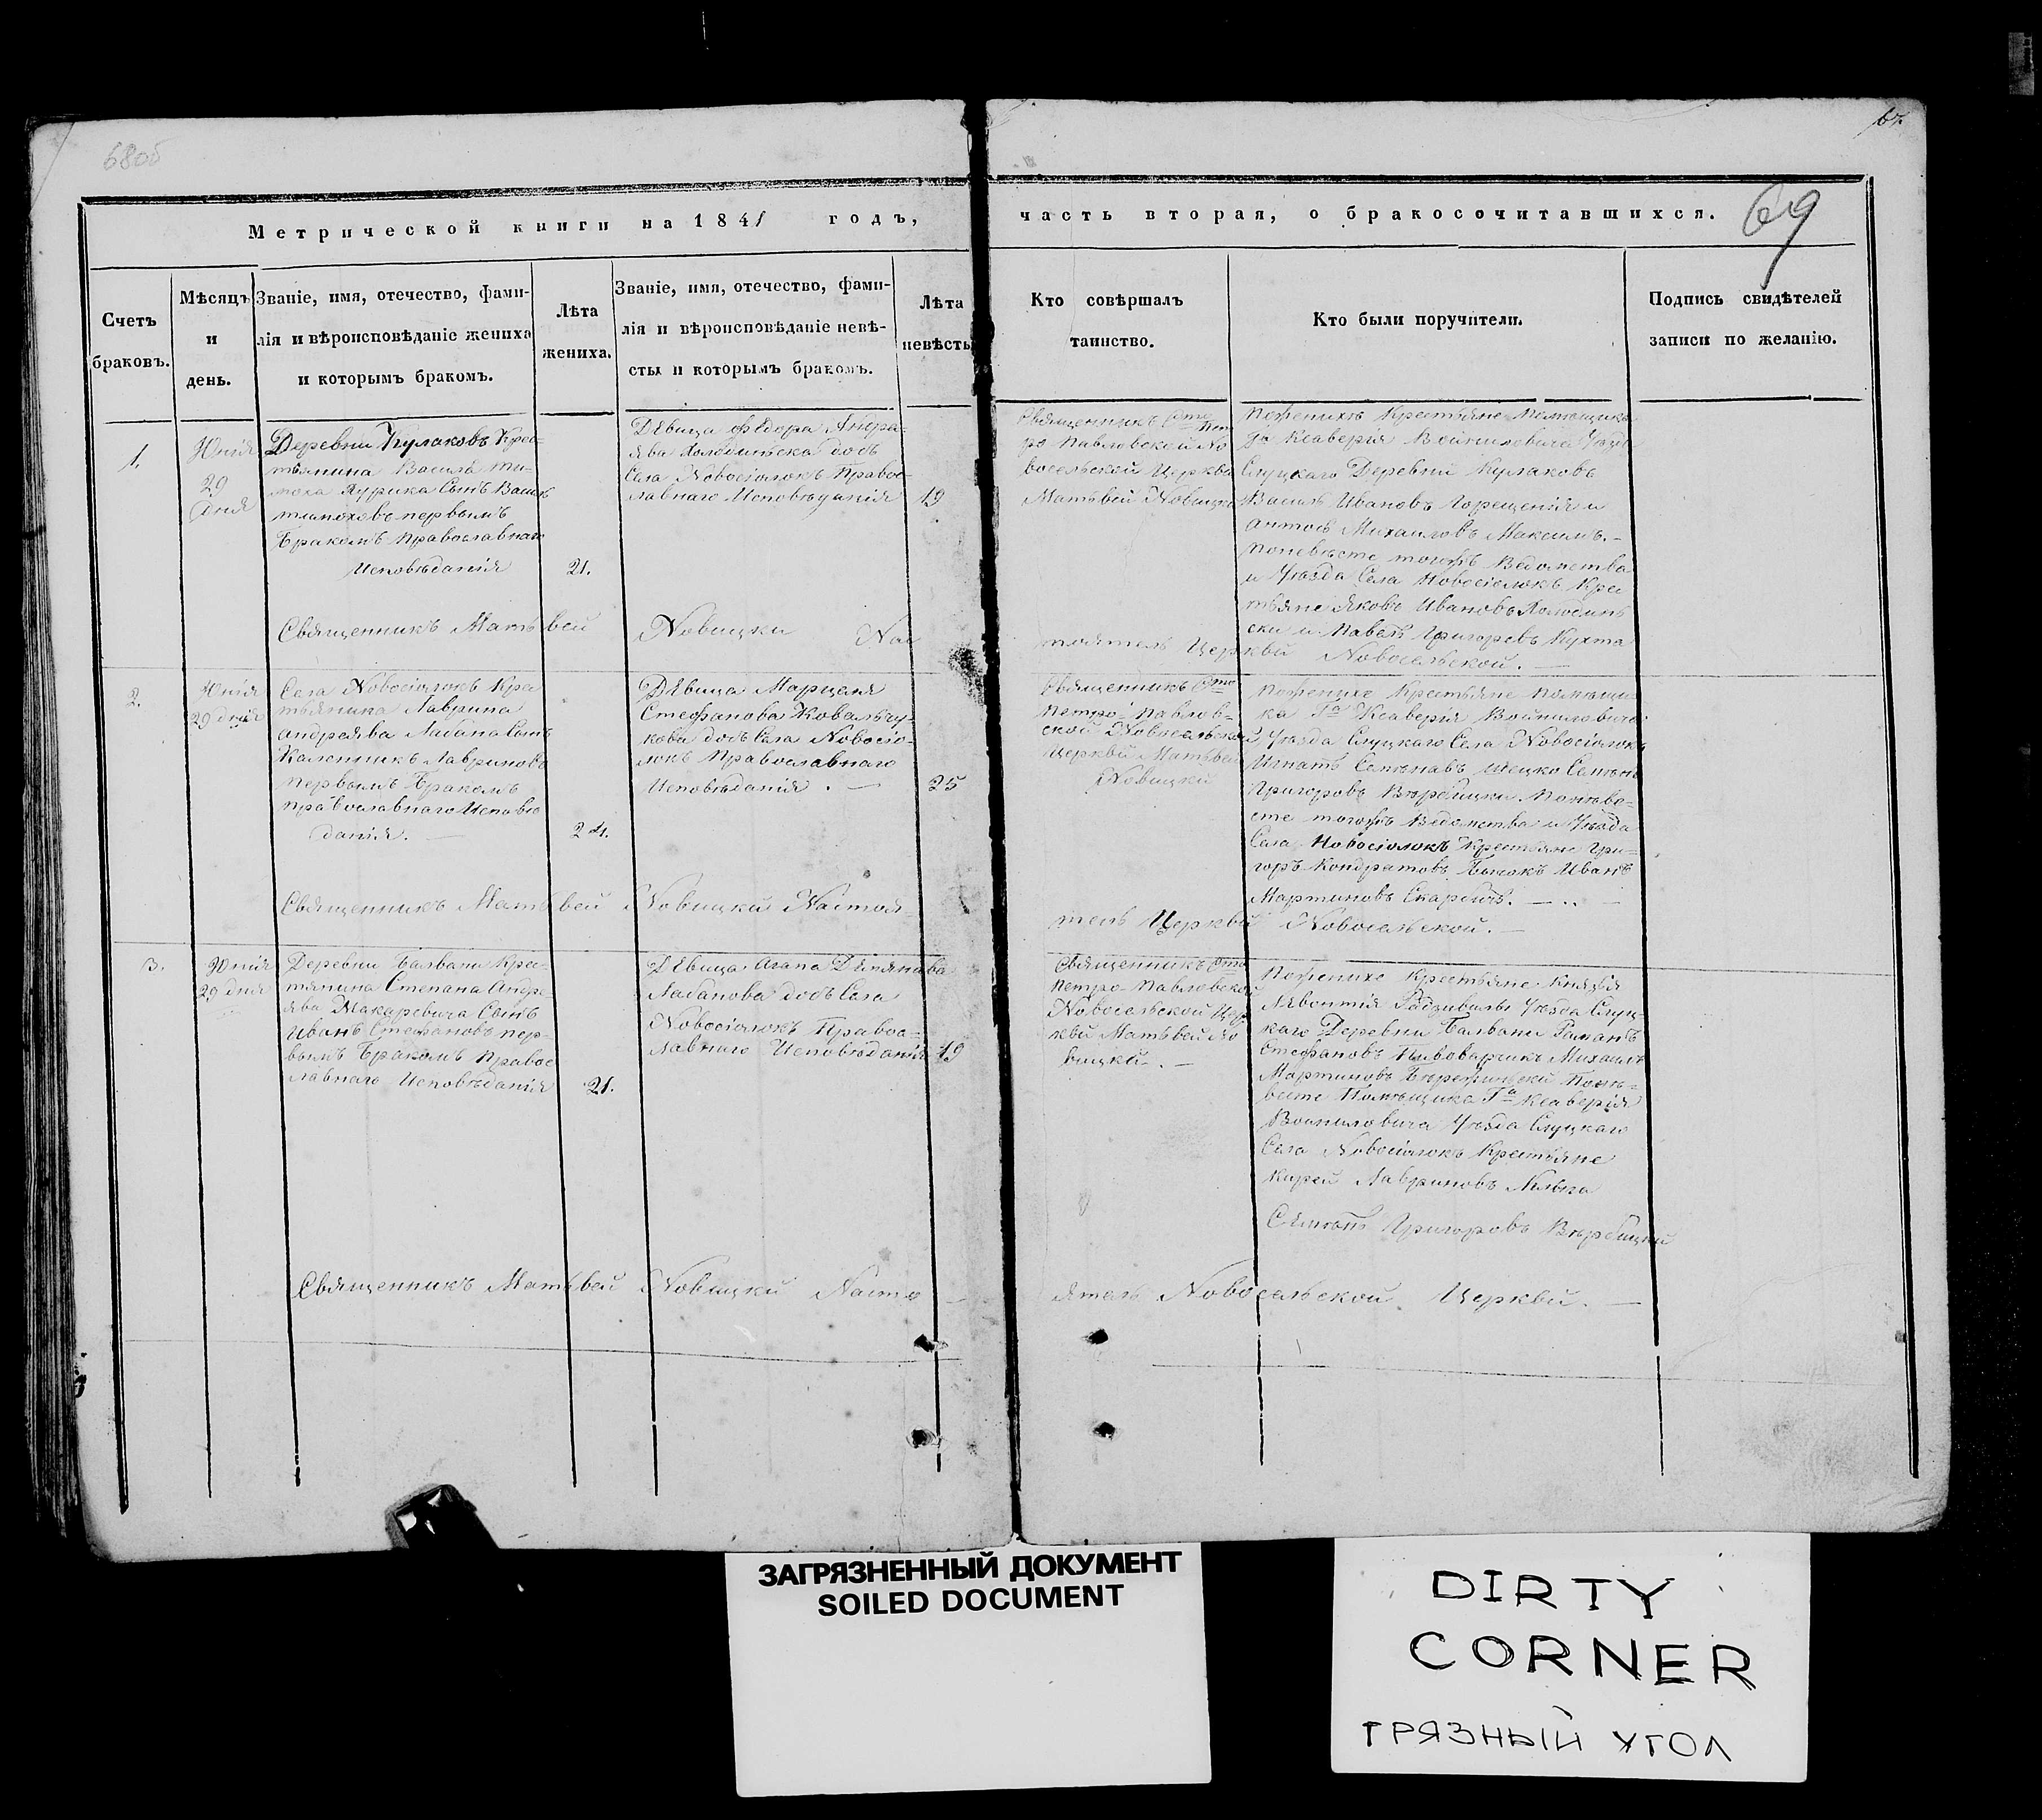 68об
67.
69
Метрической книги на 1841 годъ, часть вторая, о бракосочитавшихся.
Счетъ
браковъ.
Мѣсяцъ
и
день.
Званіе, имя, отечество, фами-
лія и вѣроисповѣданіе жениха
и которымъ бракомъ.
Лѣта
жениха.
Званіе, имя, отечество, фами-
лія и вѣроисповѣданіе невѣ-
сты и которымъ бракомъ.
Лѣта
невѣсты
Кто совѣршалъ
таинство.
Кто были поручители.
Подпись свидѣтелей
записи по желанію.
1.
Юнія
29
дня
Деревни Кулаковъ Крес-
тьянина Василя Ти-
моха Сынъ Василь
Тимоховъ первымъ
Бракомъ Православнаго
Исповѣданія
21.
Дѣвица Федора Андра-
ява дочь
Села Новосіолокъ Правос-
лавнаго Исповѣданія
19
Священникъ Сто Пет
ро Павловской Но
восельской Церкви
Матьвей Новицки
Поженихѣ Крестьяне Помѣщика
Га Ксаверія Войниловича Уѣзда
Слуцкаго Деревни Кулаковъ
Василь Ивановъ и
Антось Михайловъ Максимъ.-
Поневѣсте тогожъ Ведомства
и Уѣзда Села Новосіолокъ Крес
тьяне Яковъ Ивановъ Холодинь
ски и Павелъ Григоревъ Кухта
Священникъ Матьвей Новицки Нас
тоятель Церкви Новосельской. —
2.
Юнія
29 дня
Села Новосіолокъ Крес
тьянина Лаврина
Андреява Лабана Сынъ
Каленикъ Лавриновъ
первымъ Бракомъ
православнаго Исповѣ
данія. —
24.
Дѣвица Марцеля
Стефанова Ковальчу-
кова дочь Села Новосіо-
локъ Православнаго
Исповѣданія. —
25
Священникъ Сто
Петро-Павлов-
ской Новосельской
Церкви Матьвей
Новицки
Поженихе Крестьяне Помѣщи
ка Га Ксаверія Войниловича
Уѣзда Слуцкаго Села Новосіолокъ
Игнатъ Семѣнавъ Семѣнъ
Григоровъ Вѣрбицки Поневе-
сте тогожъ Ведомства и Уѣзда
Села Новосіолокъ Крестьяне Гри-
горъ Кондратовъ Иванъ
Мартиновъ
Священникъ Матьвей Новицки Настоя-
тель Церкви Новосельской. —
3.
Юнія
29 дня
Деревни Балвани Крес-
тянина Степана Андре-
ява Макаревича Сынъ
Иванъ Стефановъ пер-
вымъ Бракомъ Правос
лавнаго Исповѣданія
21.
Дѣвица Агапа Дѣмянава
Лабанова дочь Села
Новосіолокъ Правос-
лавнаго Исповѣданія
19
Священникъ Сто
Петро-Павловской
Новосельской Цер
кви Матьвей Но
вицки. —
Поженихе Крестьяне Князя
Лявонтія Радзивилы Уѣзда Слуц-
каго Деревни Балвани Раманъ
Стефановъ Пивоварчикъ Михаилъ
Мартиновъ Поне-
весте Помѣщика Га Ксаверія
Войниловича Уѣзда Слуцкаго
Села Новосіолокъ Крестьяне
Кирей Лавриновъ
Сѣмѣнъ Григоровъ Вѣрбицкий
Священникъ Матьвей Новицкй Насто —
ятель Новосельской Церквй. —
ЗАГРЯЗНЕННЫЙ ДОКУМЕНТ
SOILED DOCUMENT
DIRTY
CORNER
ГРЯЗНЫЙ УГОЛ